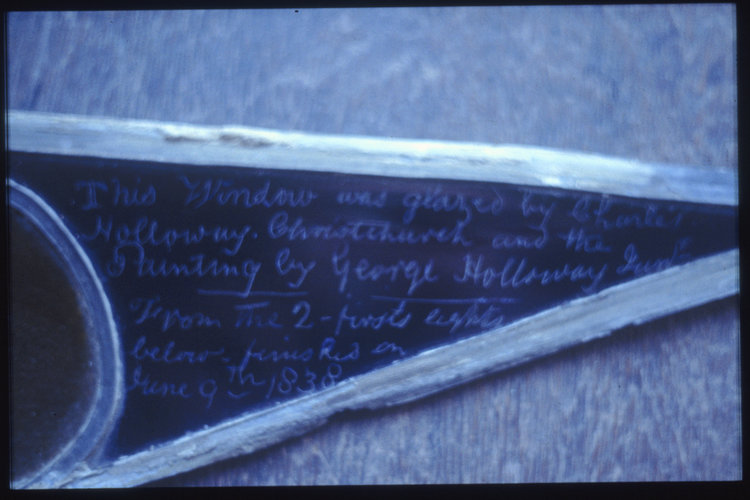 This Window was glazed by Charles
Holloway. Christchurch and the
Painting by George Holloway Junr
From the 2-firsts eights
below finished on
June 9th 1838